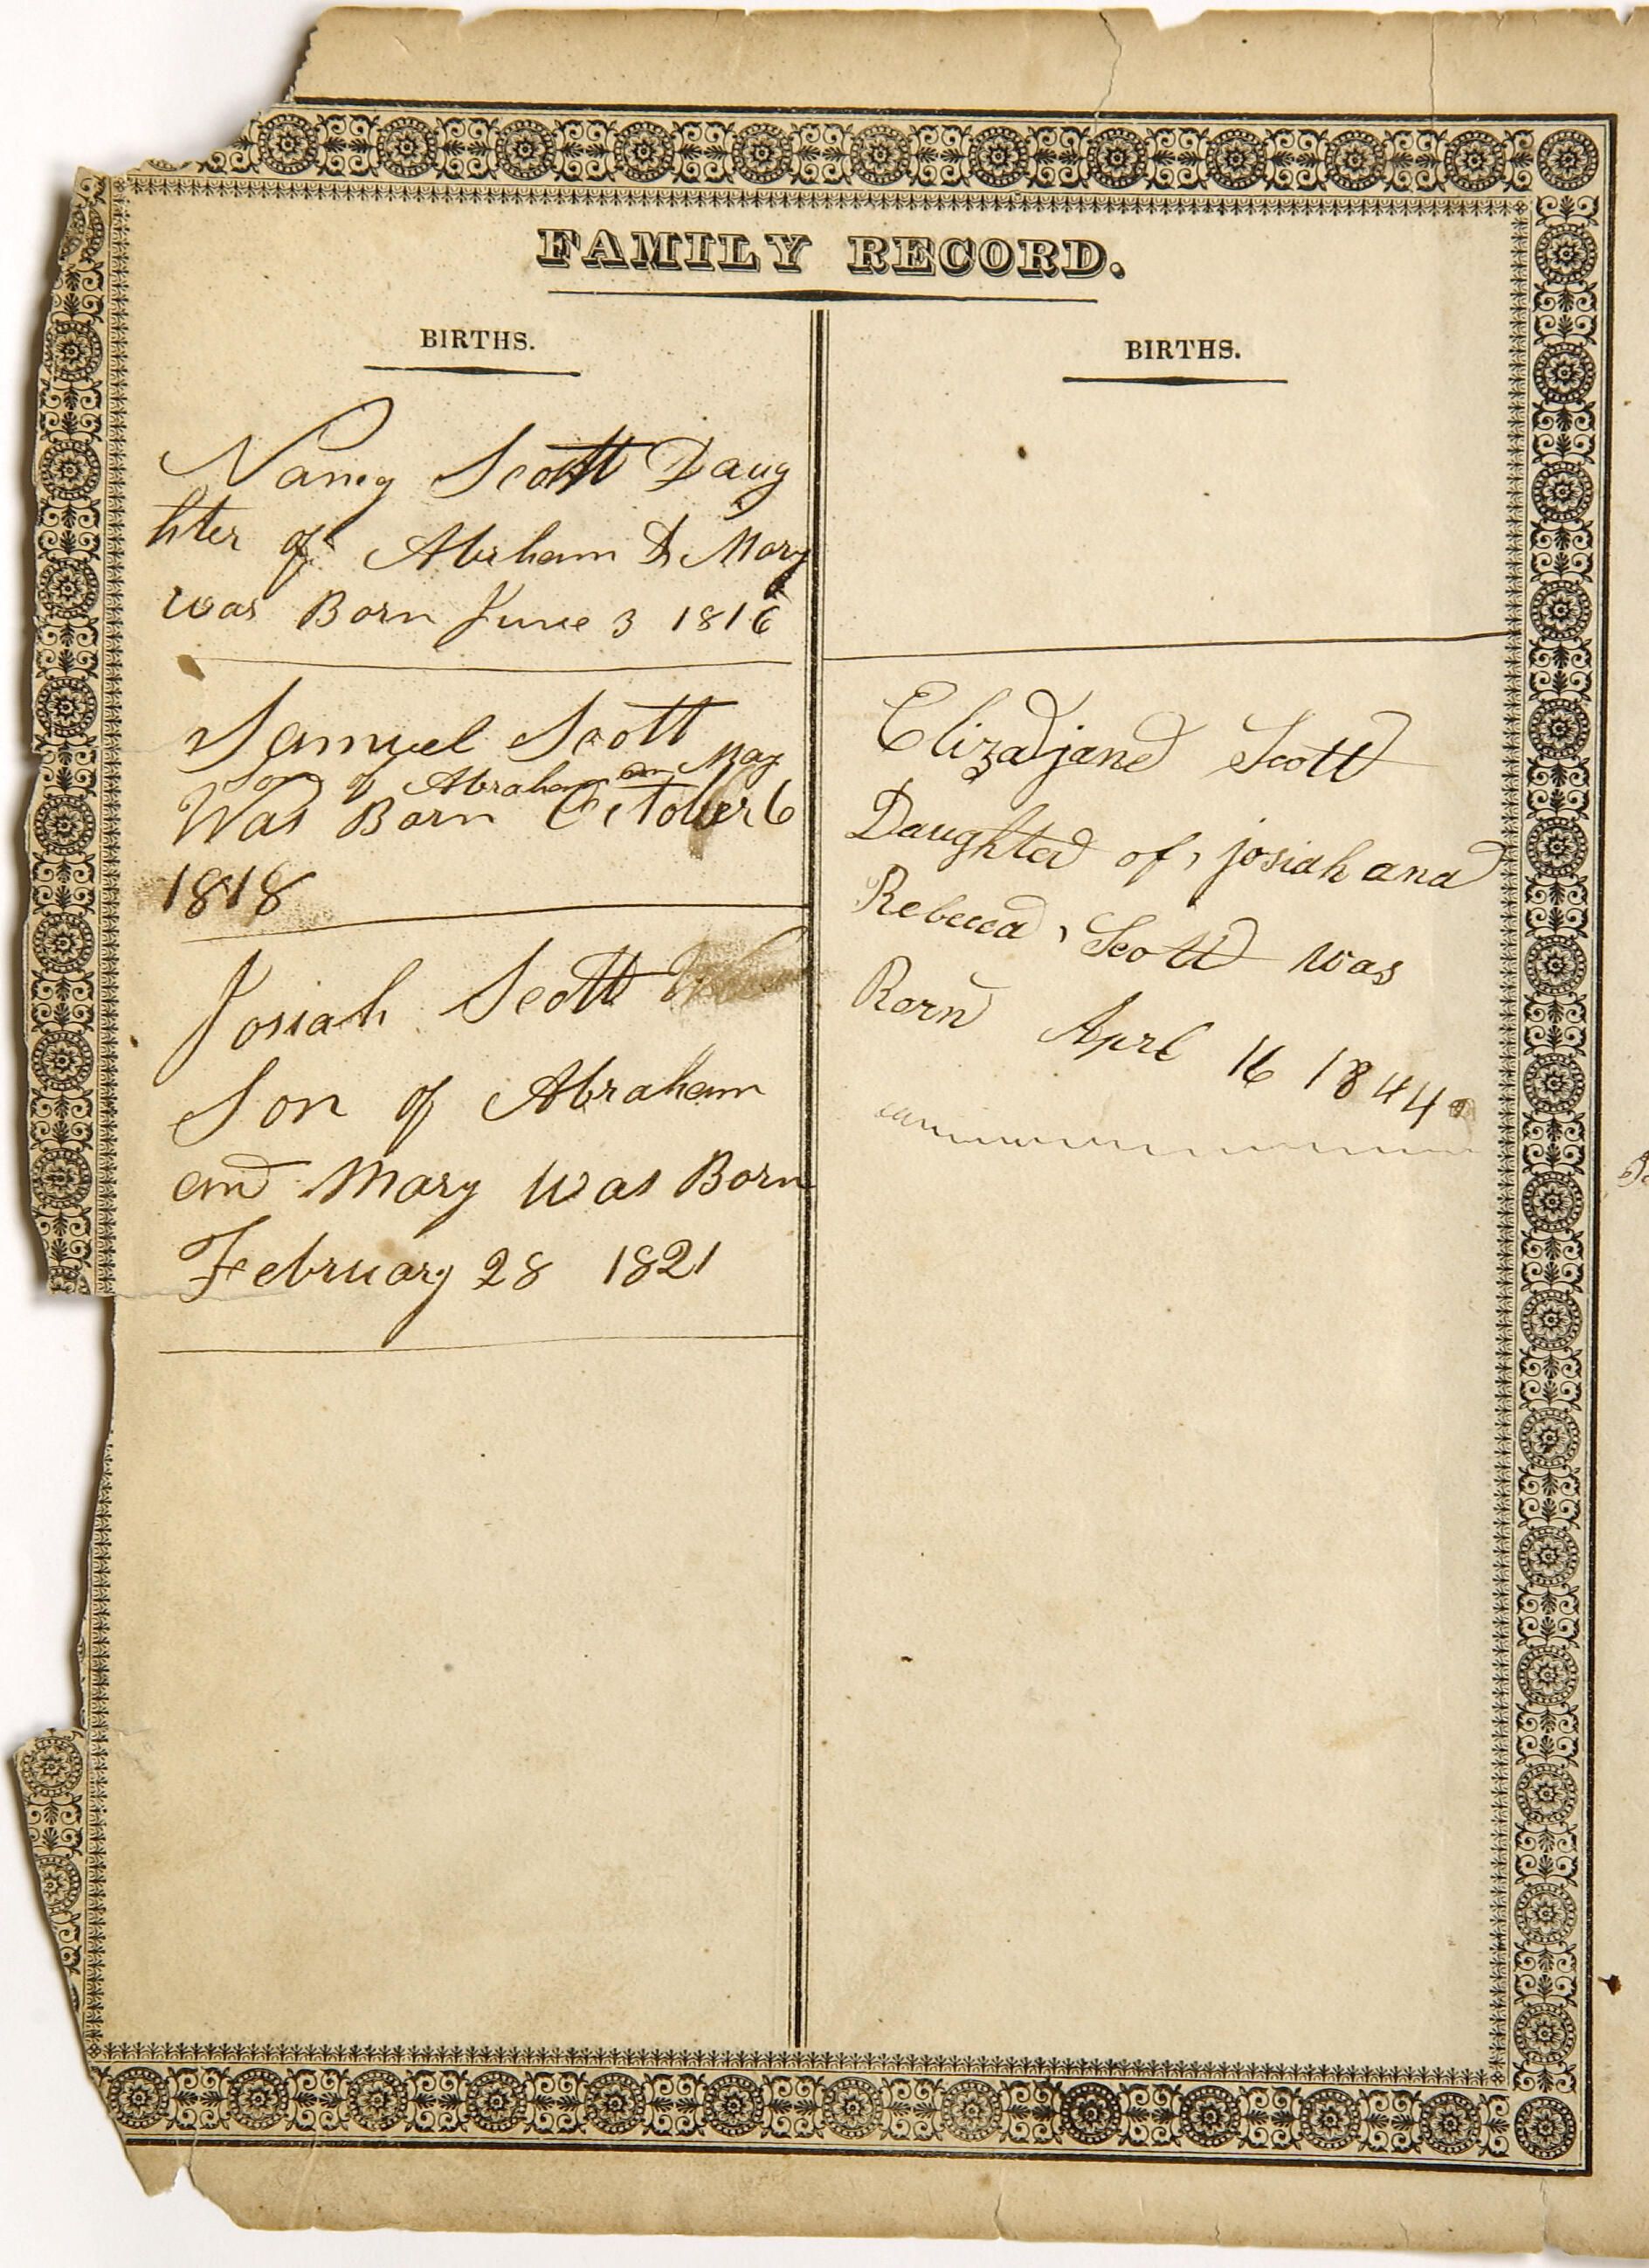 FAMILY RECORD.
BIRTHS.
Nancy Scott Daug
hter of Abraham & Mary
was Born June 3 1816
Samuel Scott
Son of Abraham an Mary
Was Born October 6
1818
Josiah Scott
Son of Abraham
and Mary was Born
February 28 1821
BIRTHS.
Elizajane Scott
Daughter of, josiah and
Rebecca, Scott was
Born Aprl 16 1844